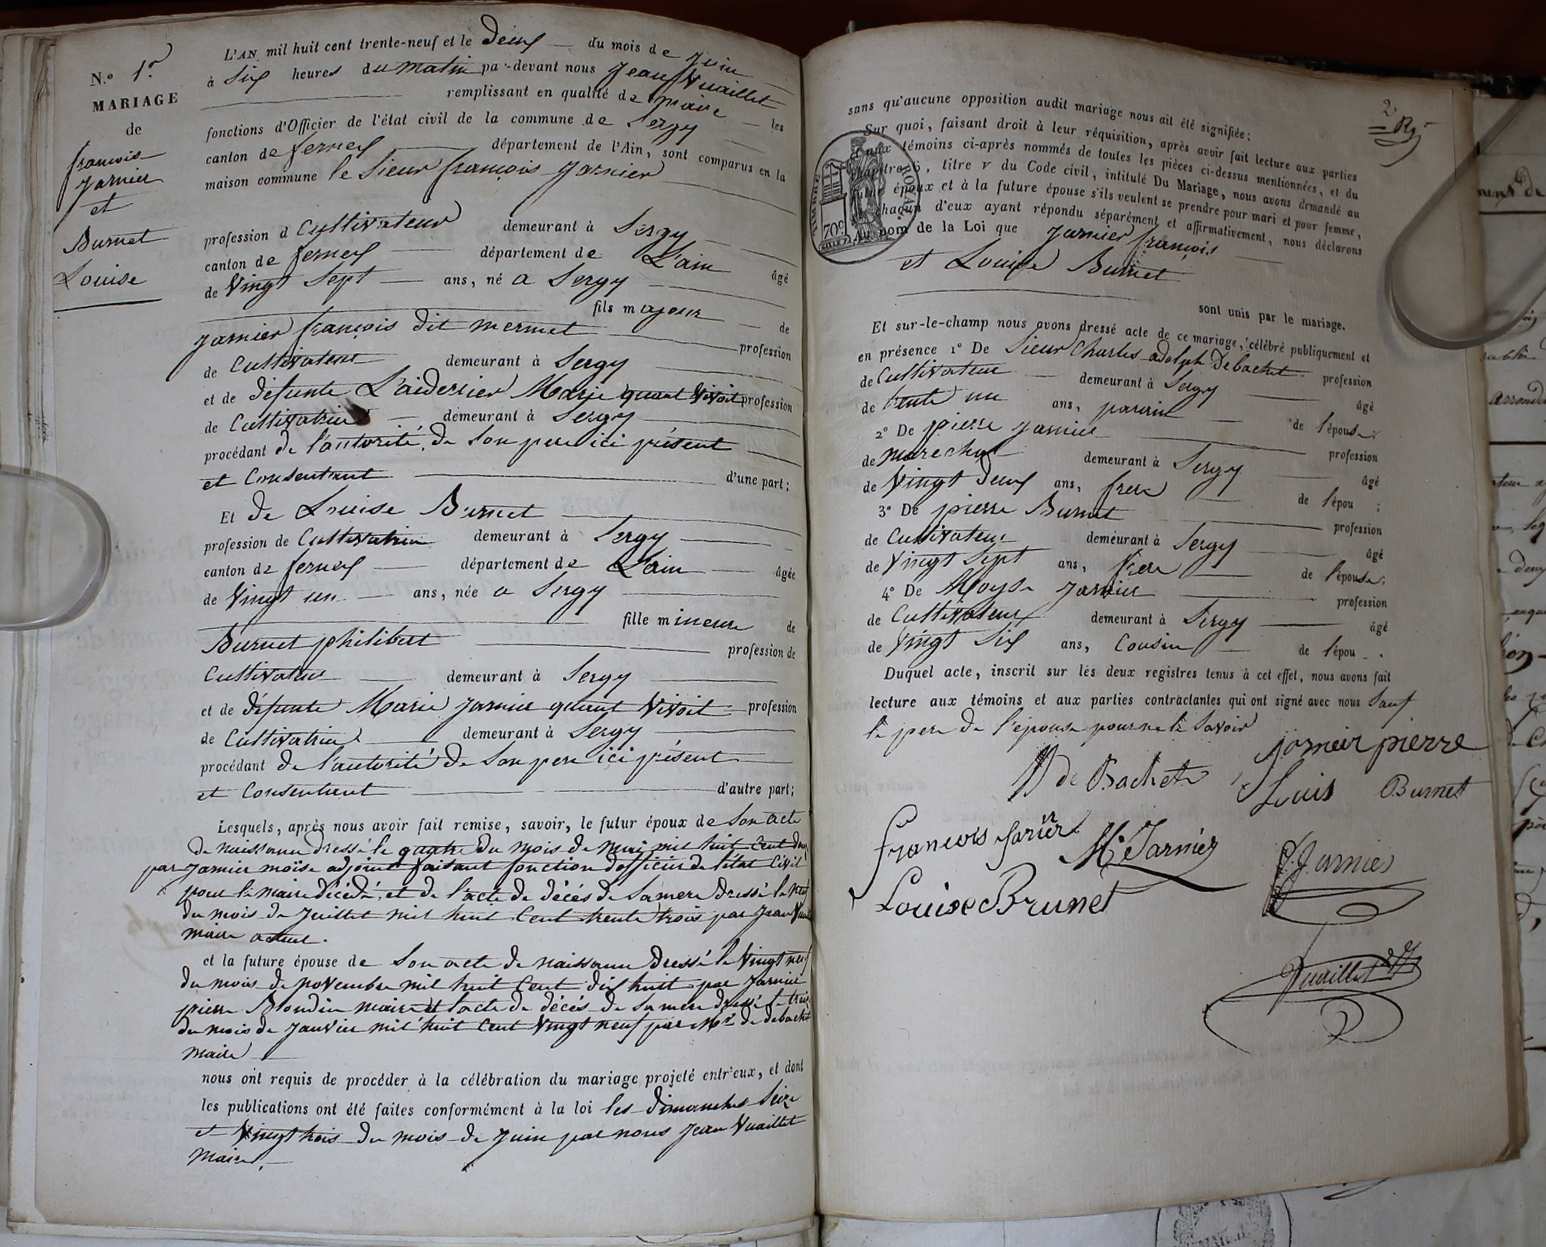 N.º 1.er
MARIAGE
de
françois
Jarnier
et
Burnet
Louise
L'AN mil huit cent trente-neuf et le deux du mois de Juin
à Six heures du matin par-devant nous Jean Vuaillet
remplissant en qualité de maire les
fonctions d'Officier de l'état civil de la commune de Sergy
canton de ferney département de l'Ain, sont comparus en la
maison commune le Sieur françois Jarnier
profession d Cultivateur demeurant à Sergy
canton de ferney département de L'ain âgé
de Vingt Sept ans, né a Sergy
fils majeur de
Jarnier françois dit mermet profession
de Cultivateur demeurant à Sergy
et de défunte Marie quant Vivoit profession
de Cultivatrice demeurant à Sergy
procédant de l'autorité de Son pere ici présent
et Consentant d'une part;
Et de Louise Burnet
profession de Cultivatrice demeurant à Sergy
canton de ferney département de L'ain âgée
de Vingt un ans, née a Sergy
fille mineure de
Burnet philibert profession de
Cultivateur demeurant à Sergy
et de défunte Marie Jarnier quant Vivoit profession
de Cultivatrice demeurant à Sergy
procédant de l'autorité de Son pere ici présent
et Consentent d'autre part;
Lesquels, après nous avoir fait remise, savoir, le futur époux de Son acte
de naissance dressé le quatre du mois de mai mil huit Cent
par Jarnier moïse adjoint faisant fonction d'officier de l'état Civil
pour le maire décédé, et de l'acte de décés de Sa mere dressé le
du mois de Juillet mil huit Cent trente trois par Jean
maire actuel.
et la future épouse de Son acte de naissance dressé le Vingt neuf
du mois de novembre mil huit Cent dix huit par Jarnier
pierre Blondin maire et l'acte de décés de Sa mere dressé le trois
du mois de Janvier mil huit Cent Vingt neuf par Mr de debachet
maire
nous ont requis de procéder à la célébration du mariage projeté entr'eux, et dont
les publications ont été faites conformément à la loi les dimanches Seize
et Vingt trois du mois de Juin par nous Jean Vuaillet
maire.
2
sans qu'aucune opposition audit mariage nous ait été signifiée;
Sur quoi, faisant droit à leur réquisition, après avoir fait lecture aux parties
aux témoins ci-après nommés de toutes les pièces ci-dessus mentionnées, et du
titre V du Code civil, intitulé Du Mariage, nous avons demandé au
époux et à la future épouse s'ils veulent se prendre pour mari et pour femme,
chacun d'eux ayant répondu séparément et affirmativement, nous déclarons
Au nom de la Loi que Jarnier françois
et Louise Burnet
TIMBRE ROYAL
70c
sont unis par le mariage.
Et sur-le-champ nous avons dressé acte de ce mariage, célébré publiquement et
en présence 1º De Sieur Charles adolph Debachet profession
de Cultivateur demeurant à Sergy âgé
de trente un ans, parrain de l'épouse;
2º De pierre Jarnier profession
de marechal demeurant à Sergy âgé
de Vingt deux ans, frere de l'épou ;
3º De pierre Burnet profession
de Cultivateur demeurant à Sergy âgé
de Vingt Sept ans, frere de l'épouse;
4º De Moyse Jarnier profession
de Cultivateur demeurant à Sergy âgé
de Vingt Six ans, Cousin de l'épou .
Duquel acte, inscrit sur les deux registres tenus à cet effet, nous avons fait
lecture aux témoins et aux parties contractantes qui ont signé avec nous Sauf
le pere de l'épouse pour ne le Savoir
de Bachet Jarnier pierre
Louis Burnet
François
M. Jarnier
Jarnier
Louise Brunet
Vuaillet